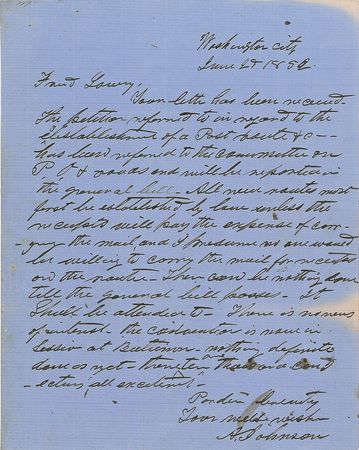 Washington city
June 2d 1852
Friend Lowry,
Your letter has been received
The petition referred to in regard to the
establishment of a Post route &c -
has been referred to the committee on
P. O & roads and will be reported in
the general bill - All new routes must
first be established by law unless the
receipts will pay the expense of carr-
ying the mail, and I presume no one would
be willing to carry the mail for receipts
on the route - There can be nothing done
till the general bill passes - It
shall be attended to - There is no news
of interest - the convention is now in
session at Baltimore - nothing definite
done as yet -
all excitement -
Pardon
Your well wisher
A. Johnson